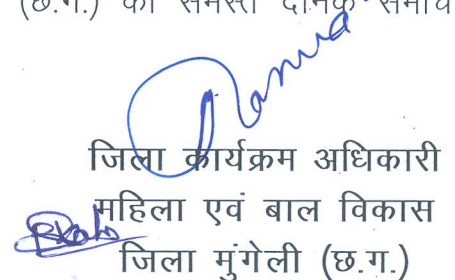 (छ.ग.) को समस्त दैनिक समाच
जिला कार्यक्रम अधिकारी
महिला एवं बाल विकास
जिला मुंगेली (छ.ग.)